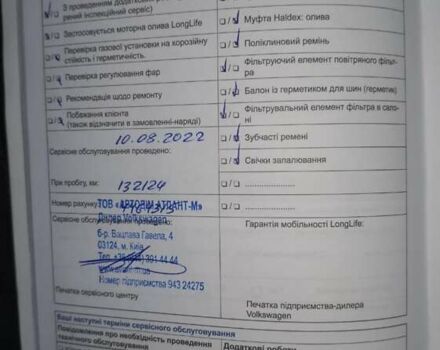 З проведенням додатков
рений інспекційний сервіс)
Застосовується моторна олива LongLife
Перевірка газової установки на корозійну
стійкість і герметичність.
Перевірка регулювання фар
Рекомендація щодо ремонту
Побажання клієнта
(також відзначити в замовленні-наряді)
Муфта Haldex: олива
Поліклиновий ремінь
Фільтруючий елемент повітряного фільт-
ра
Балон із герметиком для шин (герметик)
Фільтрувальний елемент фільтра в сало-
ні
Зубчасті ремені
Свічки запалювання
10.08.2022
Сервісне обслуговування проведено:
При пробігу, км: 132124
Номер рахунку
ТОВ «АВТОДІМ АТЛАНТ-М»
Сервісне обслуговування проведено:
Дилер Volkswagen
б-р. Вацлава Гавела, 4
03124, м. Київ
391 44 44
Номер підприємства 943 24275
Печатка сервісного центру
Гарантія мобільності LongLife:
Печатка підприємства-дилера
Volkswagen
Ваші наступні терміни сервісного обслуговування
Повідомлення про необхідність проведення
технічного обслуговування
Додаткові роботи